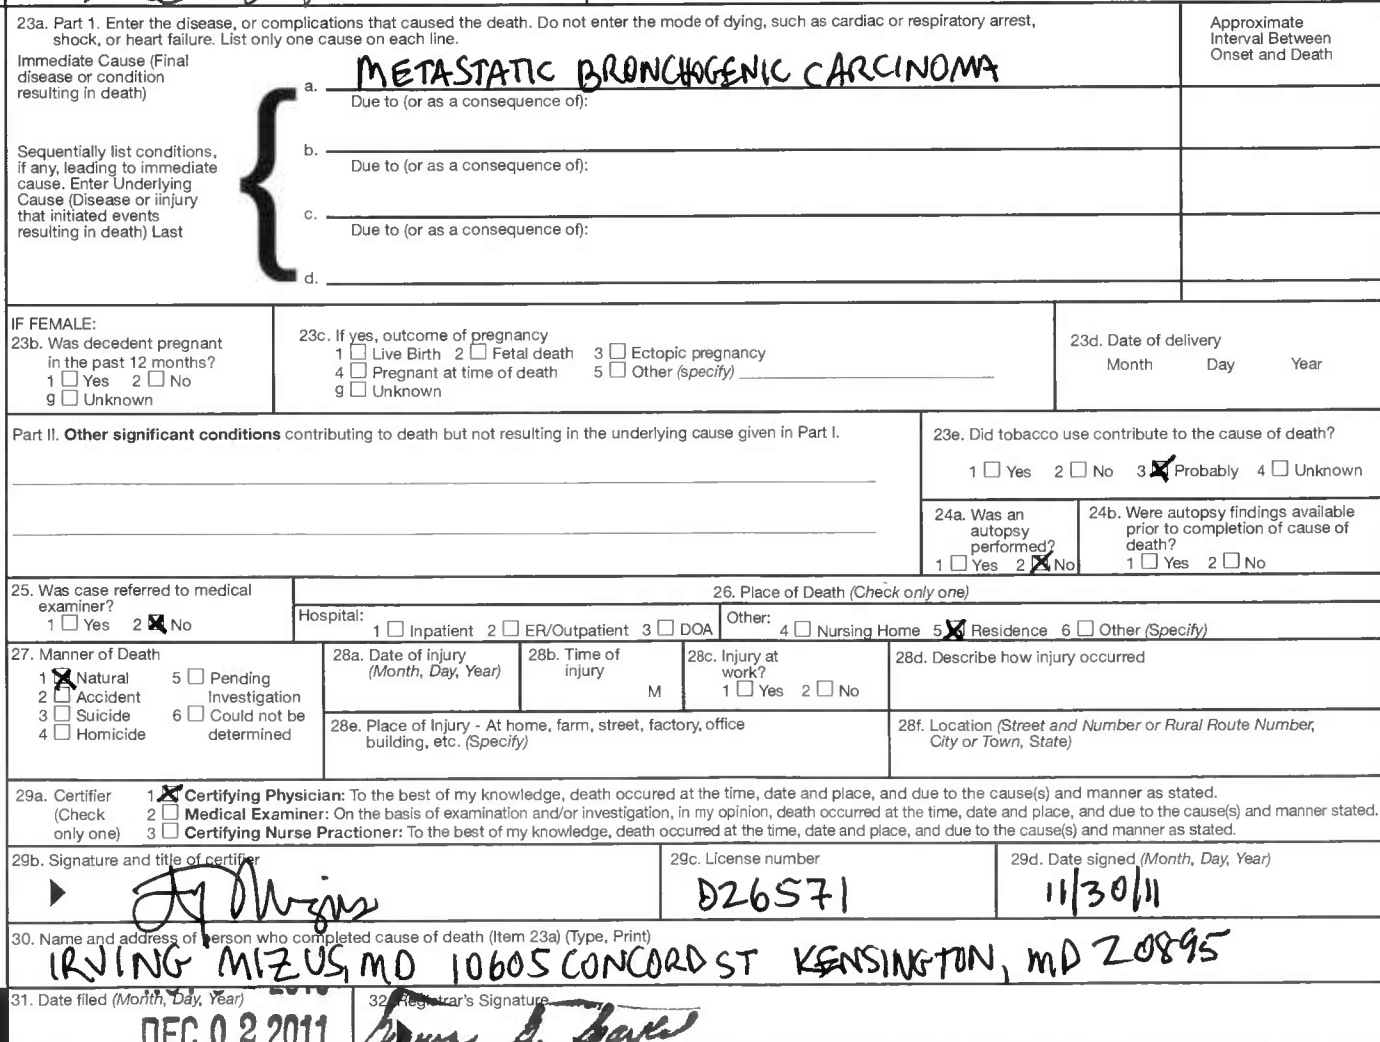 23a. Part 1. Enter the disease, or complications that caused the death. Do not enter the mode of dying, such as cardiac or respiratory arrest,
shock, or heart failure. List only one cause on each line.
Approximate
Interval Between
Onset and Death
Immediate Cause (Final
disease or condition
resulting in death)
a. METASTATIC BRONCHOGENIC CARCINOMA
Due to (or as a consequence of):
Sequentially list conditions,
if any, leading to immediate
cause. Enter Underlying
Cause (Disease or iinjury
that initiated events
resulting in death) Last
b.
Due to (or as a consequence of):
c.
Due to (or as a consequence of):
d.
IF FEMALE:
23b. Was decedent pregnant
in the past 12 months?
1 Yes 2 No
9 Unknown
23c. If yes, outcome of pregnancy
1 Live Birth 2 Fetal death 3 Ectopic pregnancy
4 Pregnant at time of death 5 Other (specify)
9 Unknown
23d. Date of delivery
Month Day Year
Part II. Other significant conditions contributing to death but not resulting in the underlying cause given in Part I.
23e. Did tobacco use contribute to the cause of death?
1 Yes 2 No 3 Probably 4 Unknown
24a. Was an
autopsy
performed?
1 Yes 2 No
24b. Were autopsy findings available
prior to completion of cause of
death?
1 Yes 2 No
25. Was case referred to medical
examiner?
1 Yes 2 No
26. Place of Death (Check only one)
Hospital: 1 Inpatient 2 ER/Outpatient 3 DOA
Other: 4 Nursing Home 5 Residence 6 Other (Specify)
27. Manner of Death
1 Natural 5 Pending
2 Accident Investigation
3 Suicide 6 Could not be
4 Homicide determined
28a. Date of injury
(Month, Day, Year)
28b. Time of
injury
M
28c. Injury at
work?
1 Yes 2 No
28d. Describe how injury occurred
28e. Place of Injury - At home, farm, street, factory, office
building, etc. (Specify)
28f. Location (Street and Number or Rural Route Number,
City or Town, State)
29a. Certifier
(Check
only one)
1 Certifying Physician: To the best of my knowledge, death occured at the time, date and place, and due to the cause(s) and manner as stated.
2 Medical Examiner: On the basis of examination and/or investigation, in my opinion, death occurred at the time, date and place, and due to the cause(s) and manner stated.
3 Certifying Nurse Practioner: To the best of my knowledge, death occurred at the time, date and place, and due to the cause(s) and manner as stated.
29b. Signature and title of certifier
29c. License number
D26571
29d. Date signed (Month, Day, Year)
11/30/11
30. Name and address of person who completed cause of death (Item 23a) (Type, Print)
IRVING MIZUS, MD 10605 CONCORD ST KENSINGTON, MD 20895
31. Date filed (Month, Day, Year)
DEC 02 2011
32. Registrar's Signature